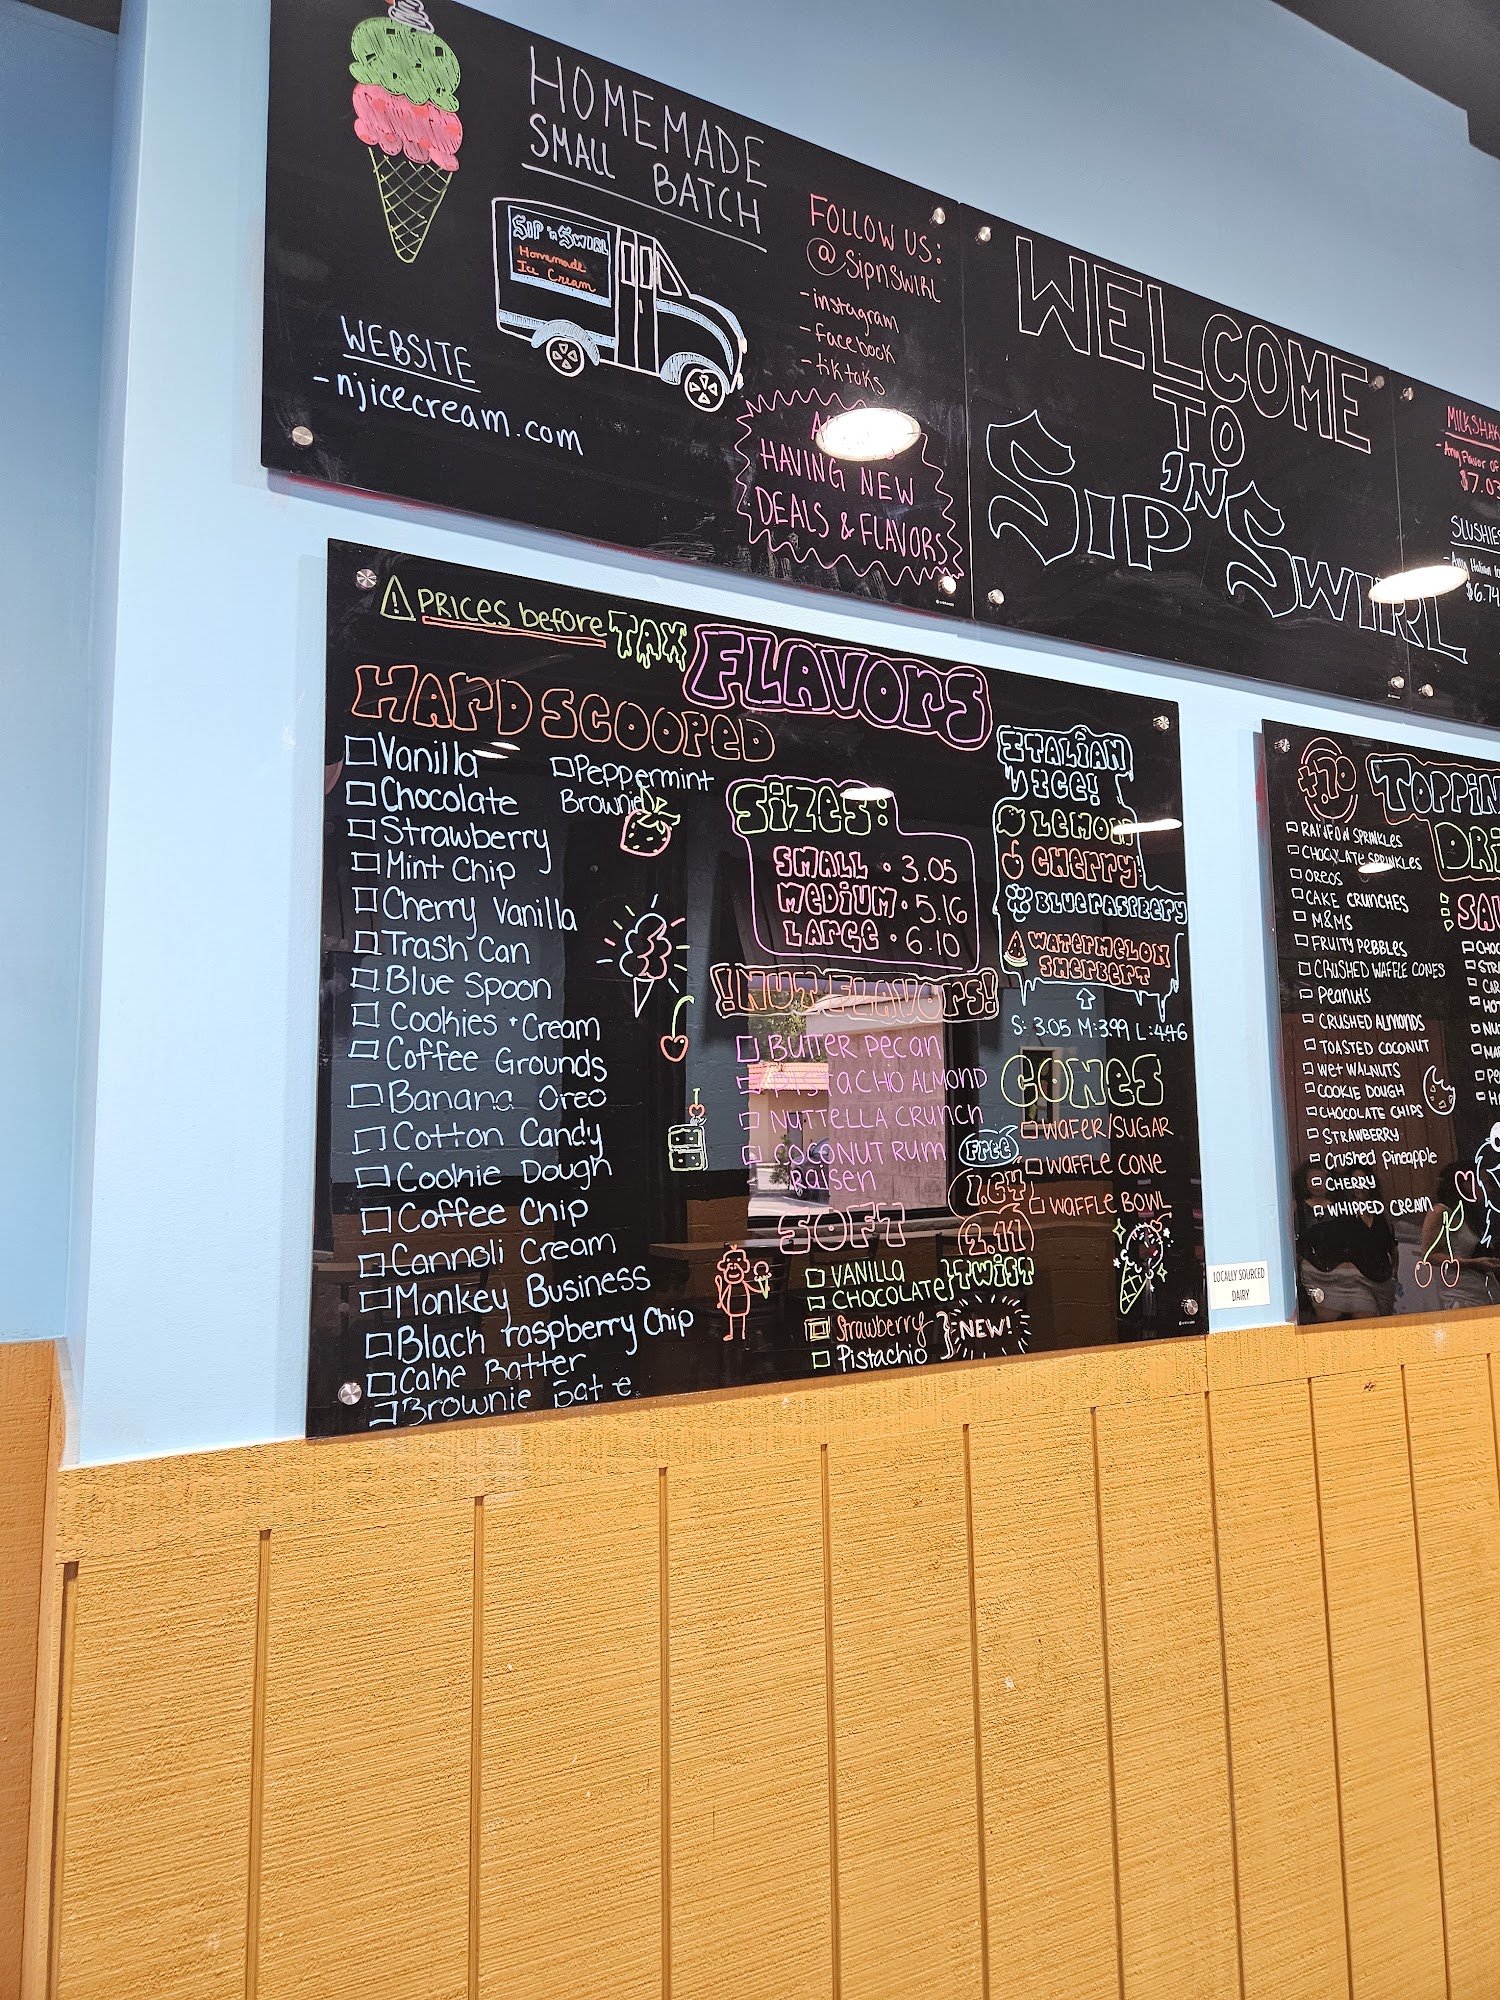 HOMEMADE
SMALL BATCH
SIP 'n SWIRL
Homemade
Ice Cream
WEBSITE
- njicecream.com
FOLLOW US:
@sipnswirl
- instagram
- facebook
- tiktoks
HAVING NEW
DEALS & FLAVORS
WELCOME
TO
SIP 'N SWIRL
MILKSHAK
- Any Flavor OF
$7.03
SLUSHIES
$6.74
PRICES before TAX
FLAVORS
HARD SCOOPED
Vanilla
Chocolate
Strawberry
Mint Chip
Cherry Vanilla
Trash Can
Blue Spoon
Cookies + Cream
Coffee Grounds
Banana Oreo
Cotton Candy
Cookie Dough
Coffee Chip
Cannoli Cream
Monkey Business
Black raspberry Chip
Cake Batter
Brownie
Peppermint
Brownie
Sizes:
SMALL • 3.05
MEDIUM • 5.16
LARGE • 6.10
!NUT FLAVORS!
BUTTER PECAN
PISTACHIO ALMOND
NUTTELLA CRUNCH
COCONUT RUM
Raisen
SOFT
VANILLA
CHOCOLATE
TWIST
Strawberry
Pistachio
NEW!
ITALIAN
ICE!
LEMON
CHERRY
BLUE RASPBERY
WATERMELON
SHERBERT
S: 3.05 M: 3.99 L: 4.46
CONES
FREE WAFER/SUGAR
1.64 WAFFLE CONE
2.11 WAFFLE BOWL
LOCALLY SOURCED
DAIRY
+.70
TOPPIN
DRI
RAINFON SPRINKLES
CHOCLATE SPRINKLES
OREOS
CAKE CRUNCHES
M&MS
FRUITY PEBBLES
CRUSHED WAFFLE CONES
Peanuts
CRUSHED ALMONDS
TOASTED COCONUT
Wet WALNUTS
COOKIE DOUGH
CHOCOLATE CHIPS
STRAWBERRY
Crushed Pineapple
CHERRY
WHIPPED CREAM
SAU
CHOC
STR
CAR
HOT
NU
MAR
PE
H